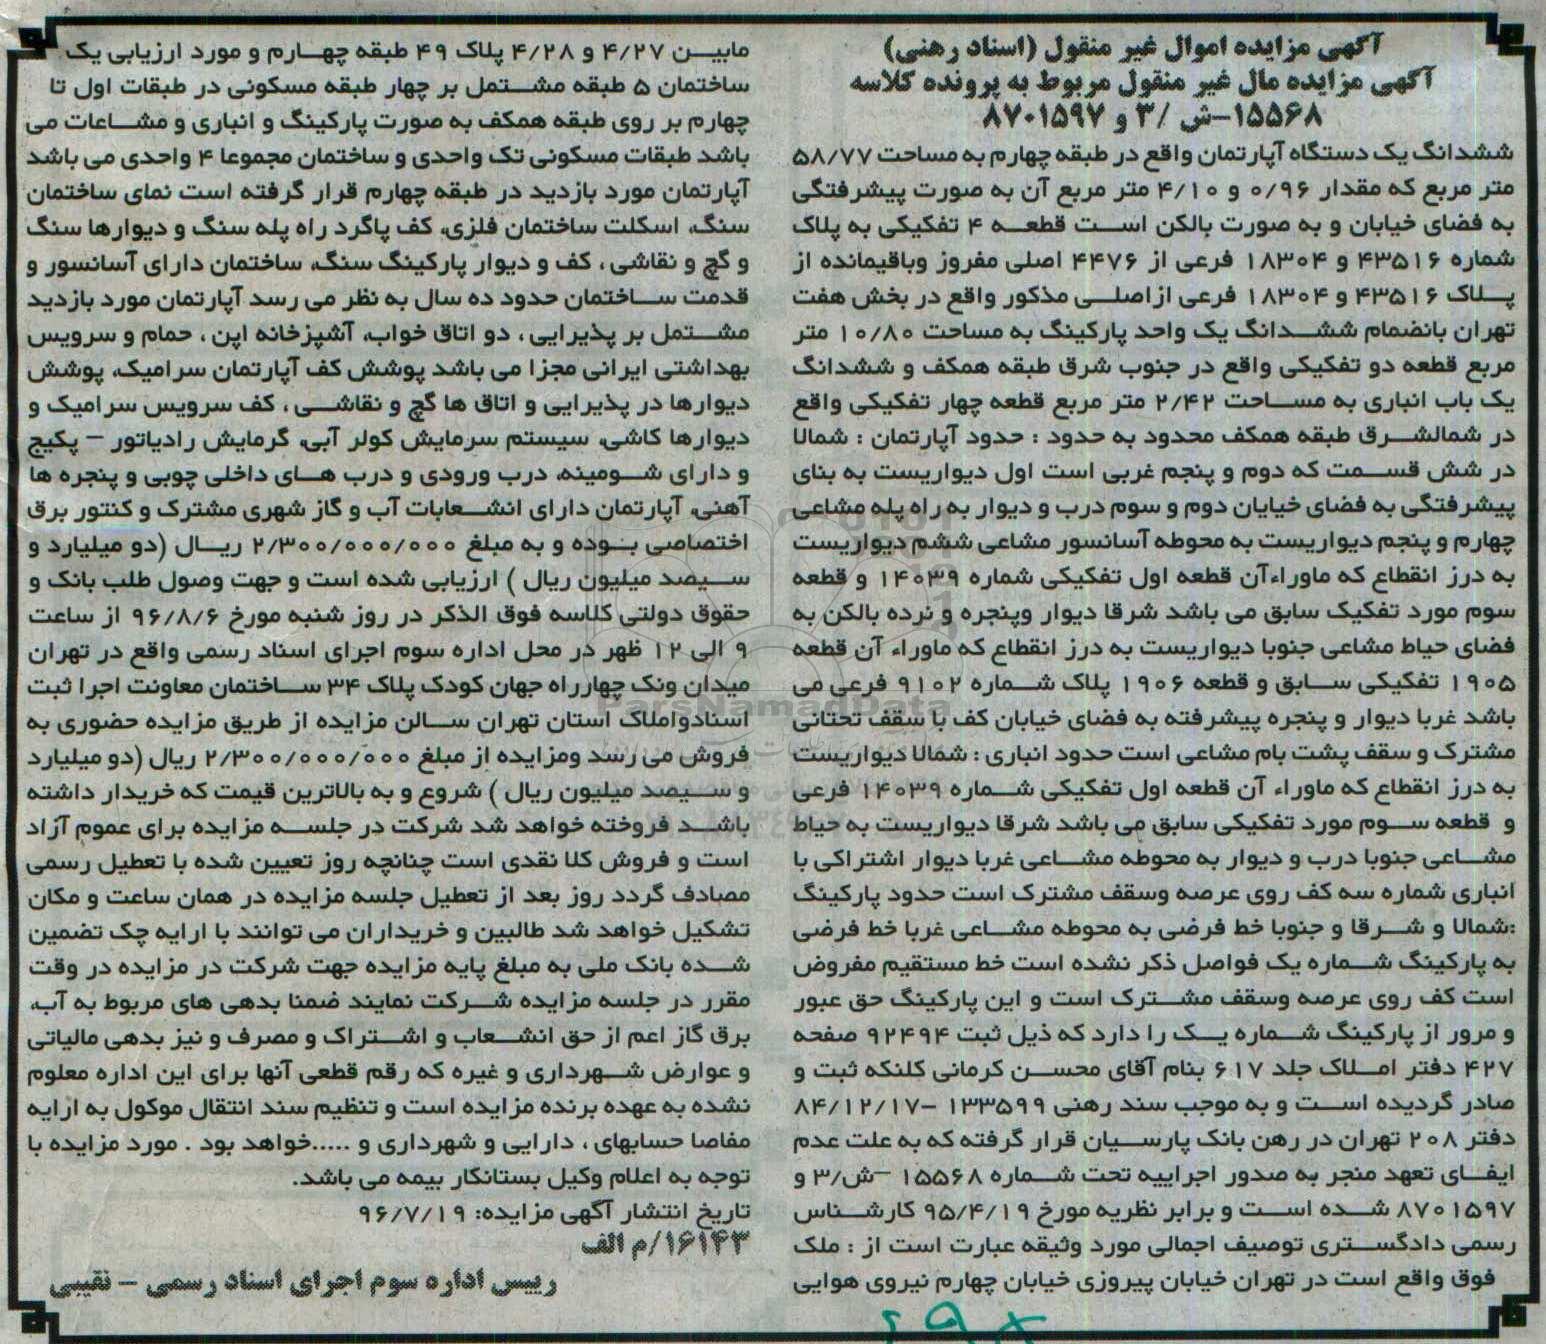 آگهی مزایده اموال غیر منقول (اسناد رهنی)
آگهی مزایده مال غیر منقول مربوط به پرونده کلاسه
۱۵۵۶۸-ش /۳ و ۸۷۰۱۵۹۷
ششدانگ یک دستگاه آپارتمان واقع در طبقه چهارم به مساحت ۵۸/۷۷
متر مربع که مقدار ۰/۹۶ و ۴/۱۰ متر مربع آن به صورت پیشرفتگی
به فضای خیابان و به صورت بالکن است قطعه ۴ تفکیکی به پلاک
شماره ۴۳۵۱۶ و ۱۸۳۰۴ فرعی از ۴۴۷۶ اصلی مفروز وباقیمانده از
پلاک ۴۳۵۱۶ و ۱۸۳۰۴ فرعی ازاصلی مذکور واقع در بخش هفت
تهران بانضمام ششدانگ یک واحد پارکینگ به مساحت ۱۰/۸۰ متر
مربع قطعه دو تفکیکی واقع در جنوب شرق طبقه همکف و ششدانگ
یک باب انباری به مساحت ۲/۴۲ متر مربع قطعه چهار تفکیکی واقع
در شمالشرق طبقه همکف محدود به حدود : حدود آپارتمان : شمالا
در شش قسمت که دوم و پنجم غربی است اول دیواریست به بنای
پیشرفتگی به فضای خیایان دوم و سوم درب و دیوار به راه پله مشاعی
چهارم و پنجم دیواریست به محوطه آسانسور مشاعی ششم دیواریست
به درز انقطاع که ماوراءآن قطعه اول تفکیکی شماره ۱۴۰۳۹ و قطعه
سوم مورد تفکیک سابق می باشد شرقا دیوار وپنجره و نرده بالکن به
فضای حیاط مشاعی جنوبا دیواریست به درز انقطاع که ماوراء آن قطعه
۱۹۰۵ تفکیکی سابق و قطعه ۱۹۰۶ پلاک شماره ۹۱۰۲ فرعی می
باشد غربا دیوار و پنجره پیشرفته به فضای خیابان کف با سقف تحتانی
مشترک و سقف پشت بام مشاعی است حدود انباری : شمالا دیواریست
به درز انقطاع که ماوراء آن قطعه اول تفکیکی شماره ۱۴۰۳۹ فرعی
و قطعه سوم مورد تفکیکی سابق می باشد شرقا دیواریست به حیاط
مشاعی جنوبا درب و دیوار به محوطه مشاعی غربا دیوار اشتراکی با
انباری شماره سه کف روی عرصه وسقف مشترک است حدود پارکینگ
:شمالا و شرقا و جنوبا خط فرضی به محوطه مشاعی غربا خط فرضی
به پارکینگ شماره یک فواصل ذکر نشده است خط مستقیم مفروض
است کف روی عرصه وسقف مشترک است و این پارکینگ حق عبور
و مرور از پارکینگ شماره یک را دارد که ذیل ثبت ۹۲۴۹۴ صفحه
۴۲۷ دفتر املاک جلد ۶۱۷ بنام آقای محسن کرمانی کلنکه ثبت و
صادر گردیده است و به موجب سند رهنی ۱۳۳۵۹۹ -۸۴/۱۲/۱۷
دفتر ۲۰۸ تهران در رهن بانک پارسیان قرار گرفته که به علت عدم
ایفای تعهد منجر به صدور اجراییه تحت شماره ۱۵۵۶۸ -ش/۳ و
۸۷۰۱۵۹۷ شده است و برابر نظریه مورخ ۹۵/۴/۱۹ کارشناس
رسمی دادگستری توصیف اجمالی مورد وثیقه عبارت است از : ملک
فوق واقع است در تهران خیابان پیروزی خیابان چهارم نیروی هوایی
مابین ۴/۲۷ و ۴/۲۸ پلاک ۴۹ طبقه چهارم و مورد ارزیابی یک
ساختمان ۵ طبقه مشتمل بر چهار طبقه مسکونی در طبقات اول تا
چهارم بر روی طبقه همکف به صورت پارکینگ و انباری و مشاعات می
باشد طبقات مسکونی تک واحدی و ساختمان مجموعا ۴ واحدی می باشد
آپارتمان مورد بازدید در طبقه چهارم قرار گرفته است نمای ساختمان
سنگ، اسکلت ساختمان فلزی، کف پاگرد راه پله سنگ و دیوارها سنگ
و گچ و نقاشی ، کف و دیوار پارکینگ سنگ، ساختمان دارای آسانسور و
قدمت ساختمان حدود ده سال به نظر می رسد آپارتمان مورد بازدید
مشتمل بر پذیرایی ، دو اتاق خواب، آشپزخانه اپن ، حمام و سرویس
بهداشتی ایرانی مجزا می باشد پوشش کف آپارتمان سرامیک، پوشش
دیوارها در پذیرایی و اتاق ها گچ و نقاشی ، کف سرویس سرامیک و
دیوارها کاشی، سیستم سرمایش کولر آبی، گرمایش رادیاتور – پکیج
و دارای شومینه، درب ورودی و درب های داخلی چوبی و پنجره ها
آهنی، آپارتمان دارای انشعابات آب و گاز شهری مشترک و کنتور برق
اختصاصی بوده و به مبلغ ۲/۳۰۰/۰۰۰/۰۰۰ ریال (دو میلیارد و
سیصد میلیون ریال ) ارزیابی شده است و جهت وصول طلب بانک و
حقوق دولتی کلاسه فوق الذکر در روز شنبه مورخ ۹۶/۸/۶ از ساعت
۹ الی ۱۲ ظهر در محل اداره سوم اجرای اسناد رسمی واقع در تهران
میدان ونک چهارراه جهان کودک پلاک ۳۴ ساختمان معاونت اجرا ثبت
اسنادواملاک استان تهران سالن مزایده از طریق مزایده حضوری به
فروش می رسد ومزایده از مبلغ ۲/۳۰۰/۰۰۰/۰۰۰ ریال (دو میلیارد
و سیصد میلیون ریال ) شروع و به بالاترین قیمت که خریدار داشته
باشد فروخته خواهد شد شرکت در جلسه مزایده برای عموم آزاد
است و فروش کلا نقدی است چنانچه روز تعیین شده با تعطیل رسمی
مصادف گردد روز بعد از تعطیل جلسه مزایده در همان ساعت و مکان
تشکیل خواهد شد طالبین و خریداران می توانند با ارایه چک تضمین
شده بانک ملی به مبلغ پایه مزایده جهت شرکت در مزایده در وقت
مقرر در جلسه مزایده شرکت نمایند ضمنا بدهی های مربوط به آب،
برق گاز اعم از حق انشعاب و اشتراک و مصرف و نیز بدهی مالیاتی
و عوارض شهرداری و غیره که رقم قطعی آنها برای این اداره معلوم
نشده به عهده برنده مزایده است و تنظیم سند انتقال موکول به ارایه
مفاصا حسابهای ، دارایی و شهرداری و .....خواهد بود . مورد مزایده با
توجه به اعلام وکیل بستانکار بیمه می باشد.
تاریخ انتشار آگهی مزایده: ۹۶/۷/۱۹
۱۶۱۴۳/م الف
رییس اداره سوم اجرای اسناد رسمی - نقیبی
ParsNamadData